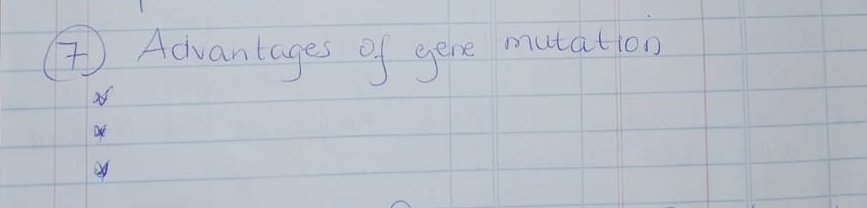 7 Advantages of gene mutation
*
*
*